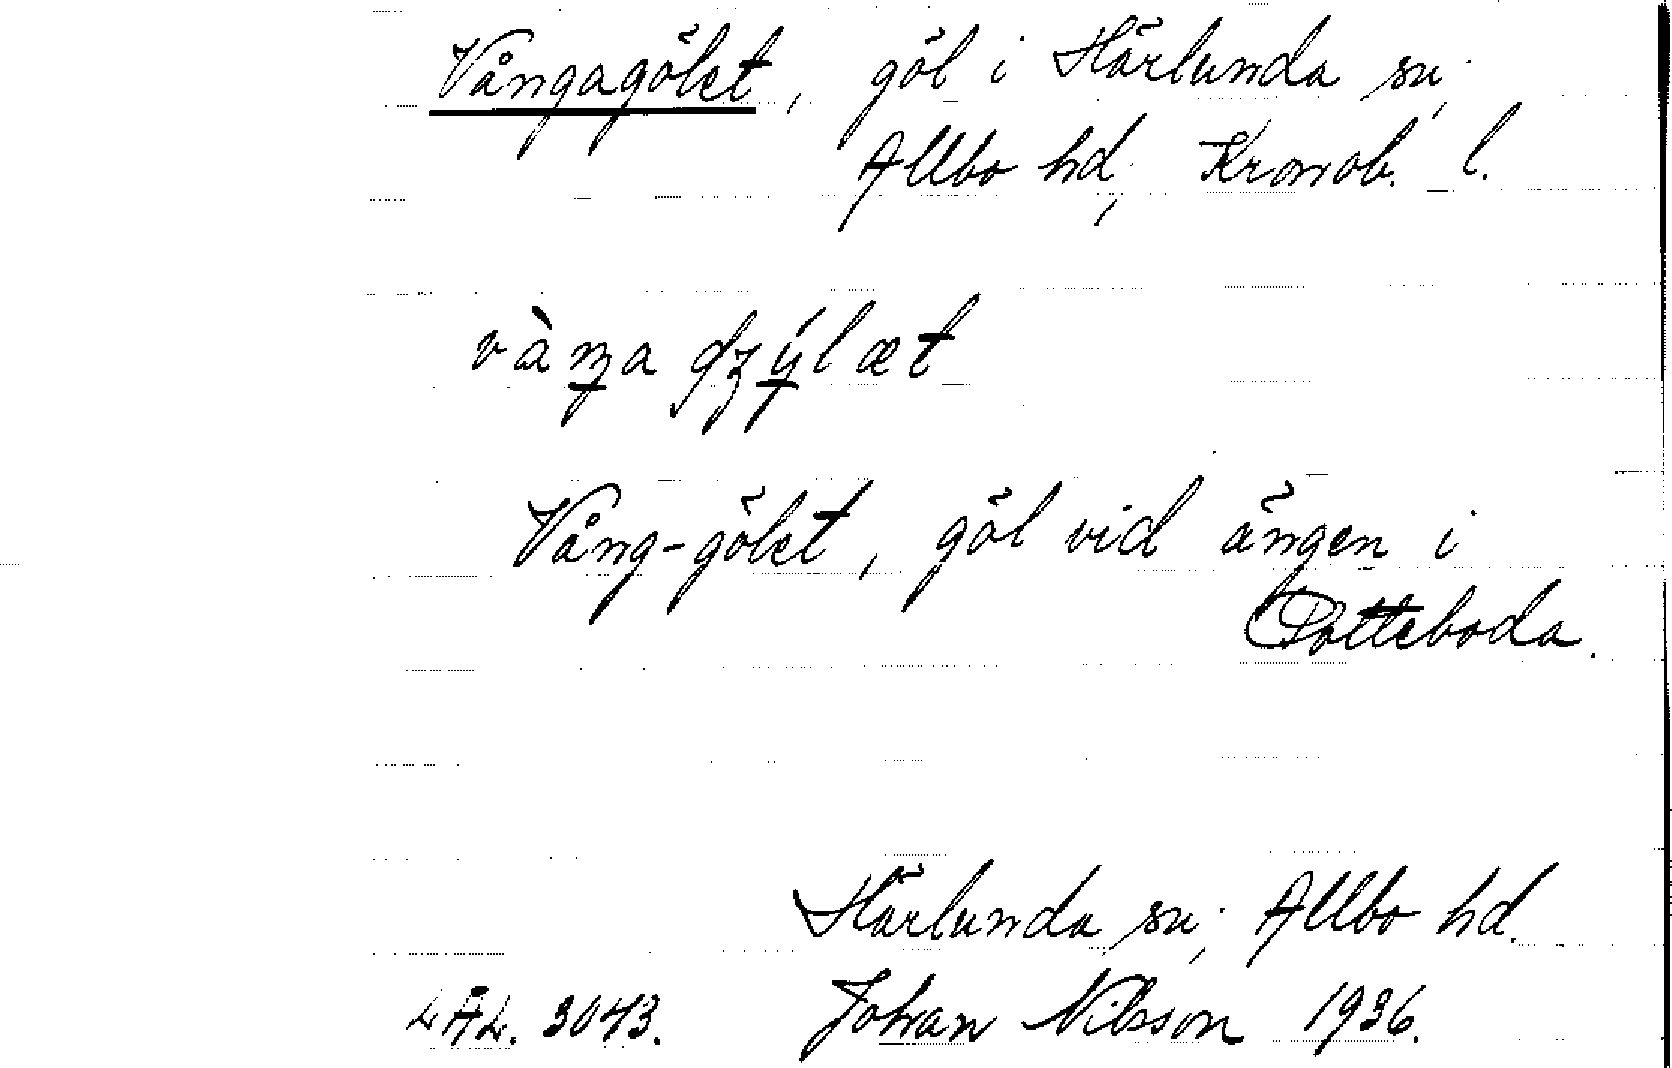 Vångagölet, göl i Härlunda sn,
Allbo hd, Kronob. l.
Vång-gölet, göl vid ängen i
Potteboda.
Härlunda sn, Allbo hd.
LAL. 3043. Johan Nilsson 1936.